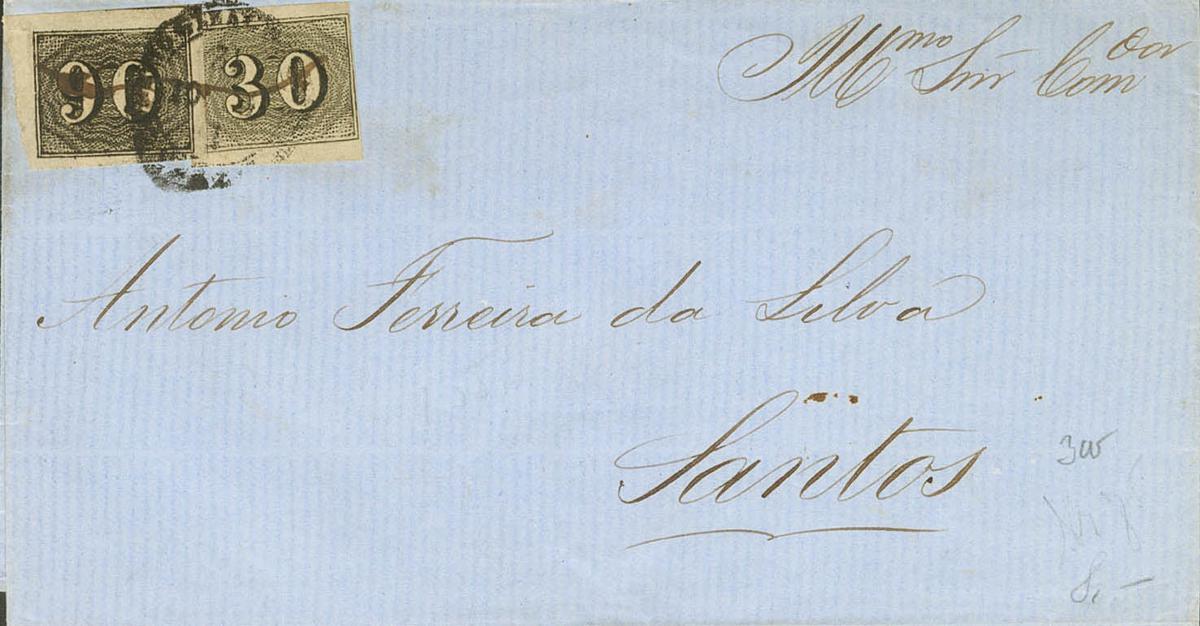 90 30
Illmo Snr Comdor
Antonio Ferreira da Silva
Santos